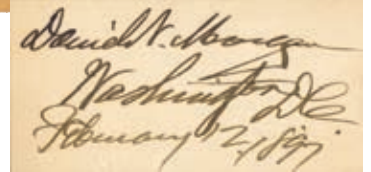 Daniel N. Morgan
Washington DC
February 12, 1897